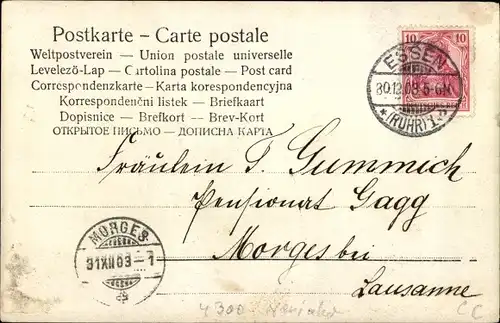 Postkarte – Carte postale
Weltpostverein — Union postale universelle
Levelezö-Lap — Cartolina postale — Post card
Correspondenzkarte - Karta korespondencyjna
Korrespondenční listek - Briefkaart
Dopisnice -- Brefkort -- Brev-Kort
ОТКРЫТОЕ ПИСЬМО — ДОПИСНА КАРТА
10 10
ESSEN
30.12.03. 5-6N
*(RUHR)1.*
Fräulein T. Gummich
Pensionat Gagg
Morges bei
Lausanne
MORGES
31.XII.03 - 1
4300
CC